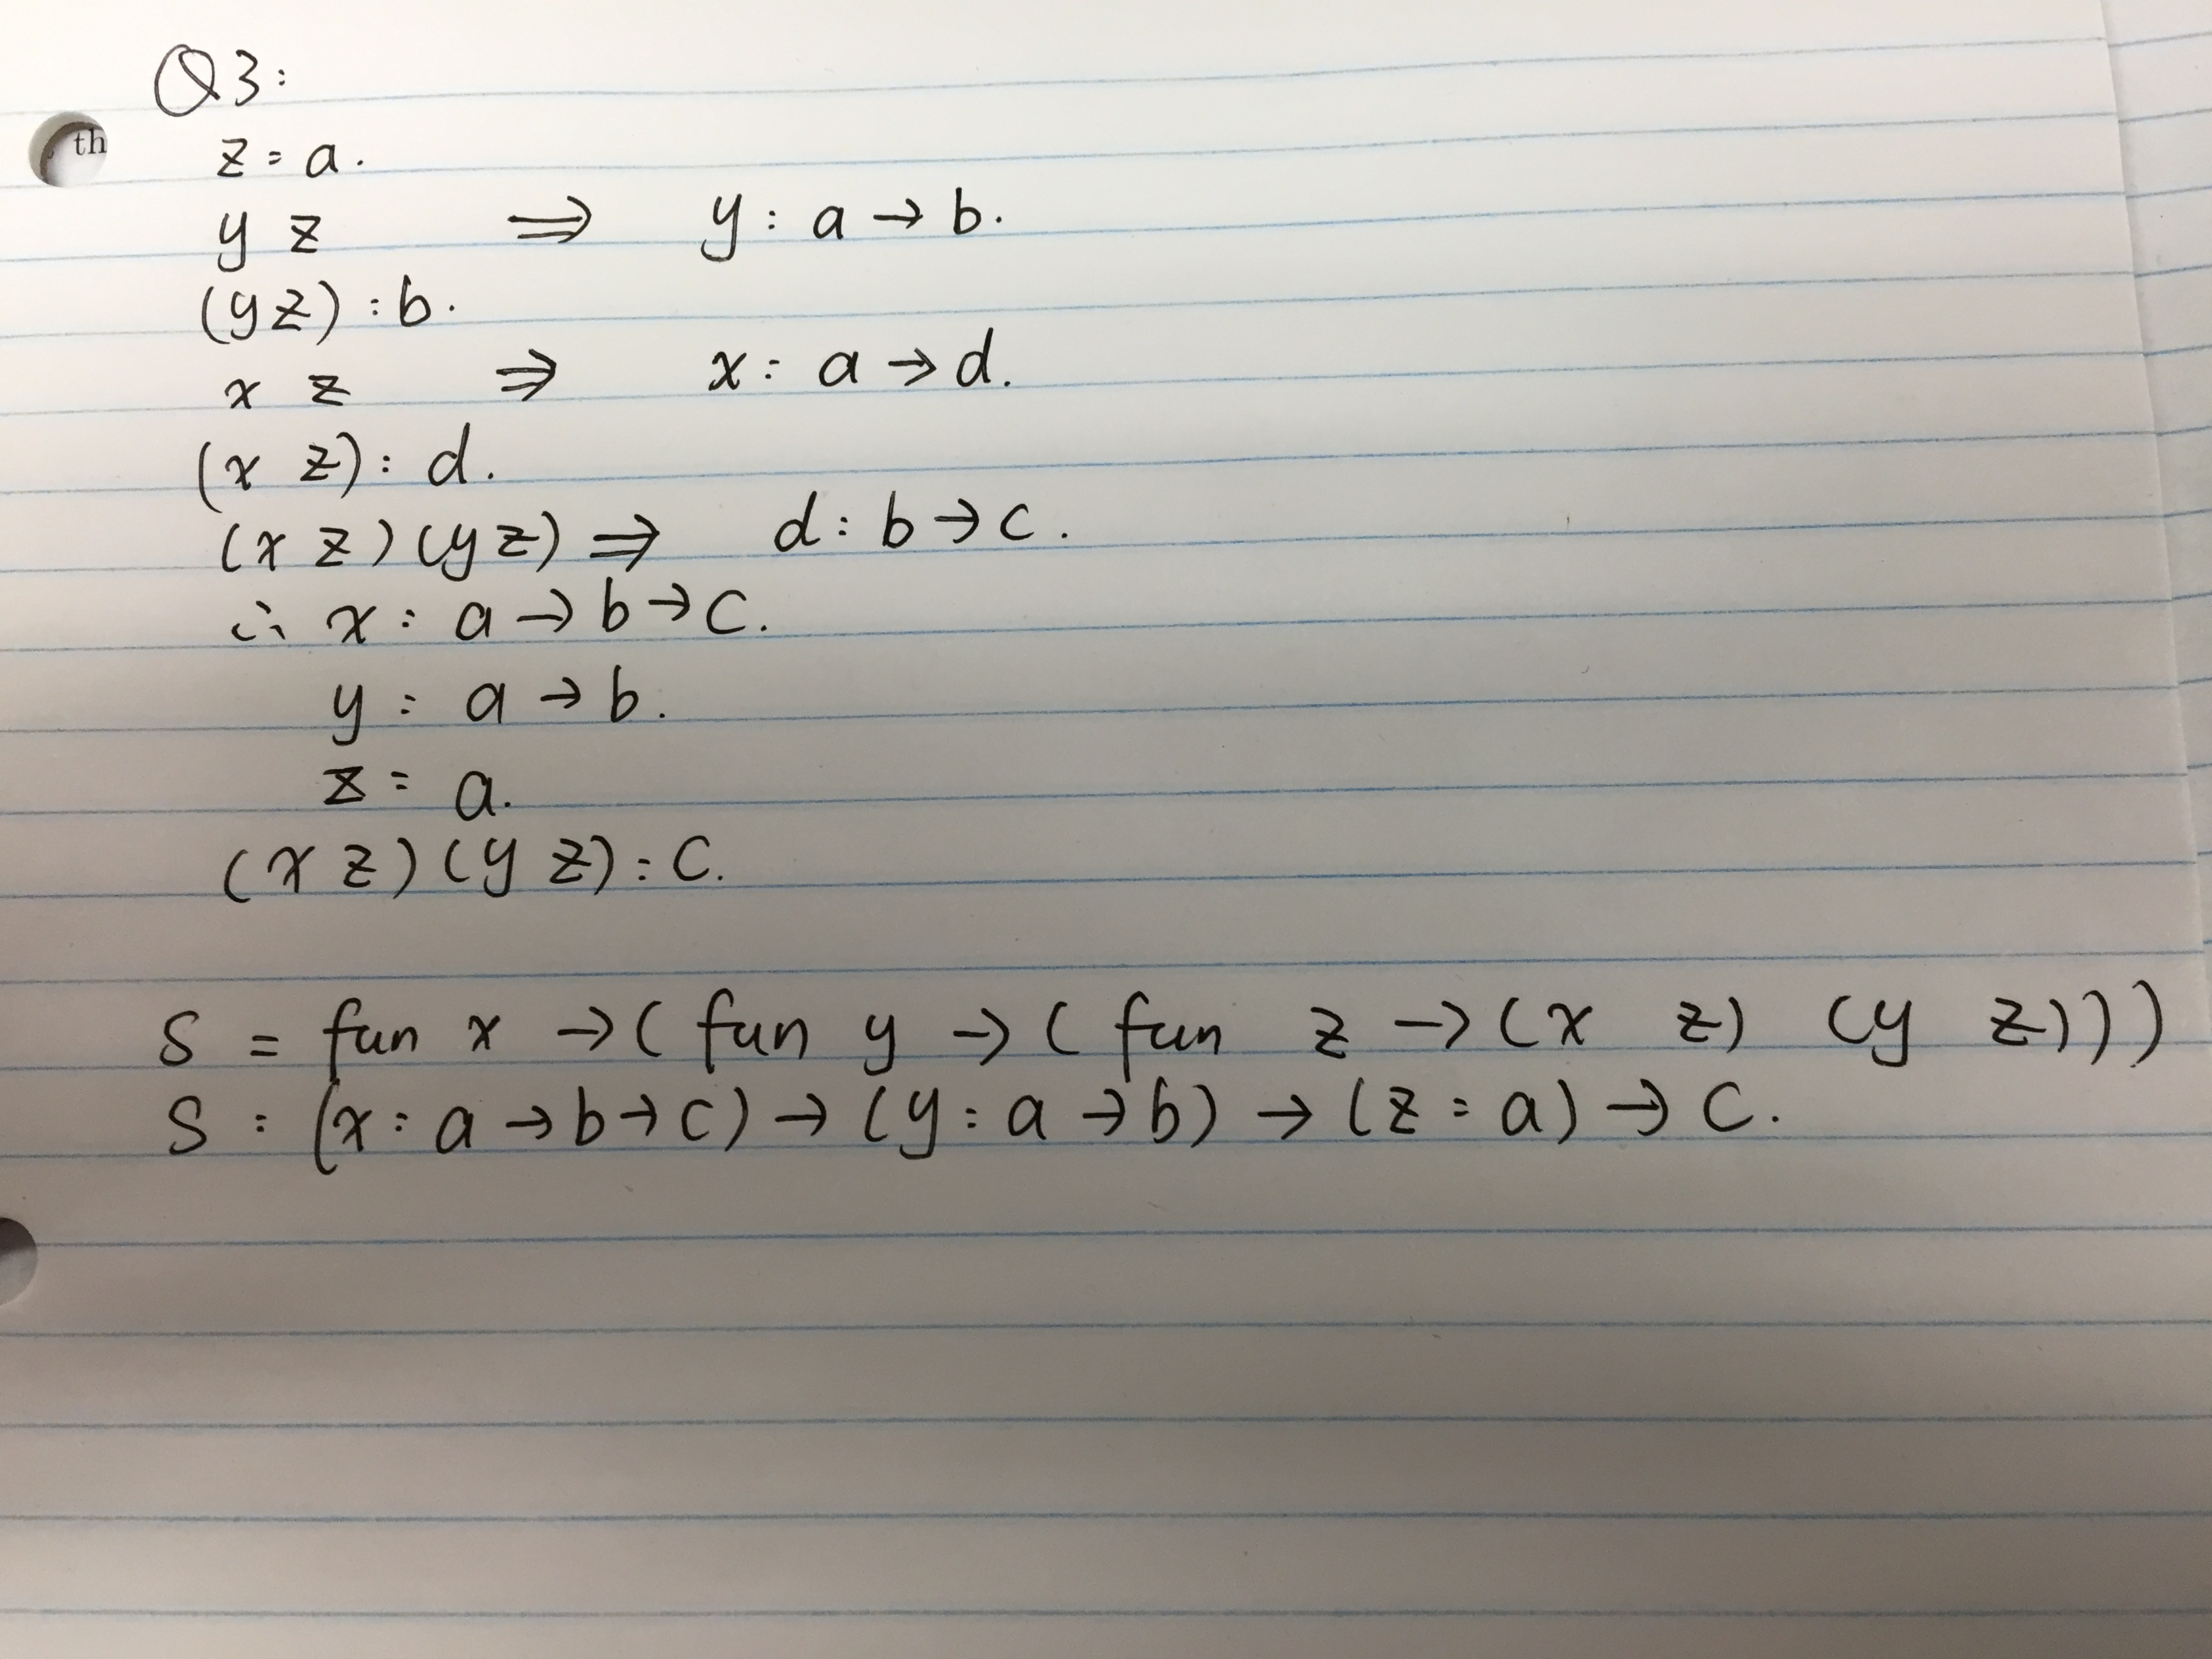 Q3:
th
z = a.
y z ⇒ y : a → b.
(y z) : b.
x z ⇒ x : a → d.
(x z) : d.
(x z) (y z) ⇒ d : b → c.
∴ x : a → b → c.
y : a → b.
z : a.
(x z) (y z) : c.
S = fun x → ( fun y → ( fun z → (x z) (y z)))
S : (x : a → b → c) → (y : a → b) → (z : a) → c.